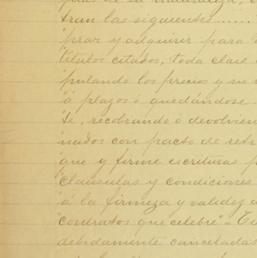 para de su naturaleza,
tran las siguientes......
prar y adquirir para
títulos citados, toda clase
putando los precios y su
á plazos ó quedándose
se, recobrando ó devolvien
inados con pacto de retr
que y firme escrituras p
cláusulas y condiciones
á la firmeza y validez d
contratos que celebre"=
debidamente canceladas